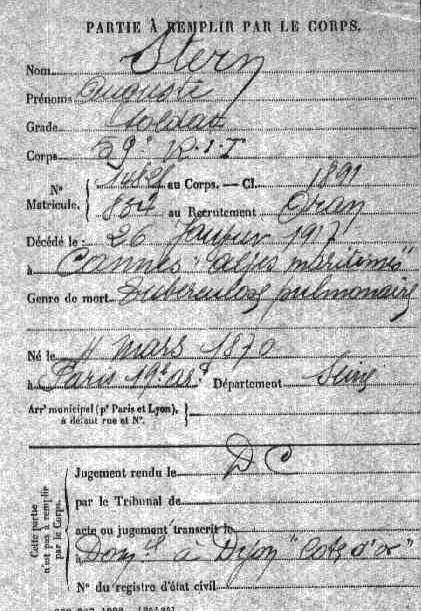 PARTIE À REMPLIR PAR LE CORPS.
Nom Stern
Prénoms Auguste
Grade Soldat
Corps 59e R.I.T
N° Matricule. { au Corps. — Cl. 1891
au Recrutement Oran
Décédé le 26 Janvier 1917
à Cannes "Alpes maritimes"
Genre de mort Tuberculose pulmonaire
Né le 11 mars 1870
à Paris 19e Département Seine
Arrt municipal (pr Paris et Lyon), {
à défaut rue et N°.
Cette partie n'est pas à remplir par le Corps.
Jugement rendu le D C
par le Tribunal de
acte ou jugement transcrit le
à Dijon "Cote d'or"
N° du registre d'état civil